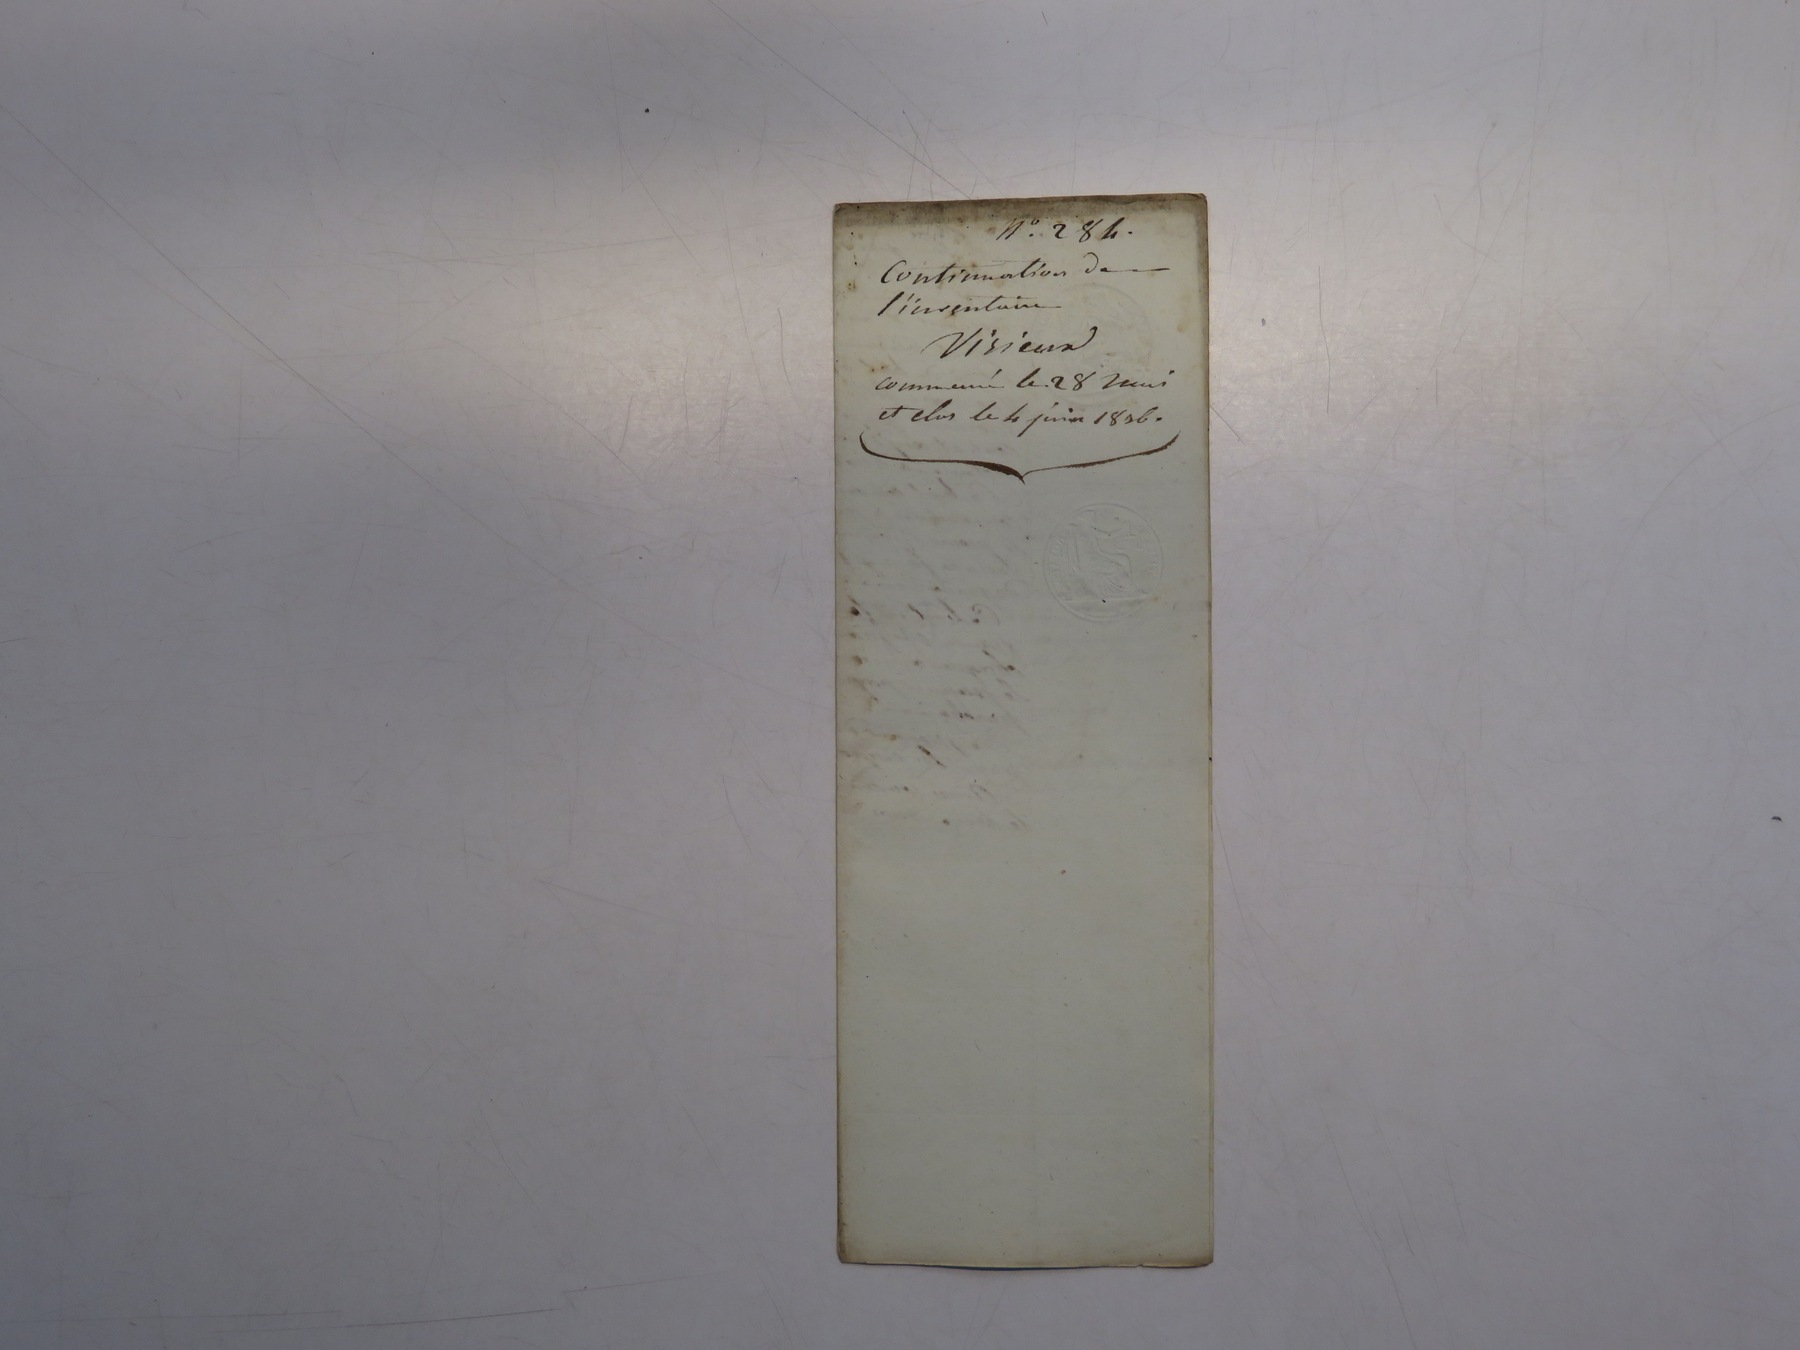 N° 284.
Continuation de
l'inventaire
Visieux
commencé le 28 mai
et clos le 4 juin 1836.